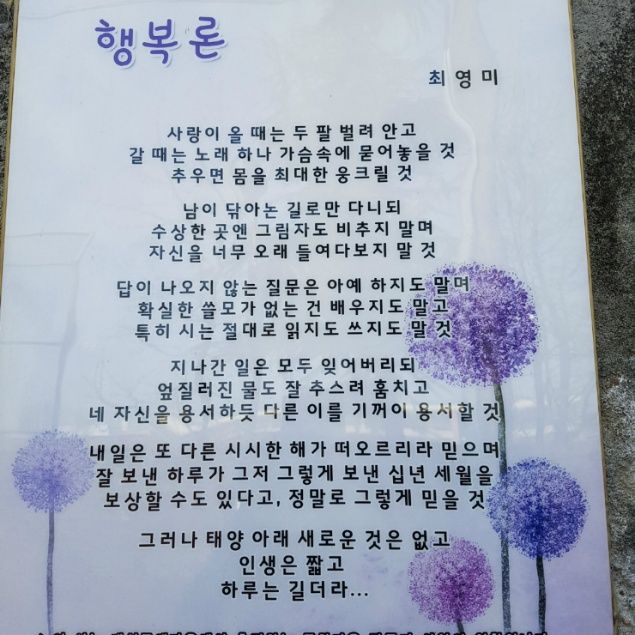 행복론
최영미
사랑이 올 때는 두 팔 벌려 안고
갈 때는 노래 하나 가슴속에 묻어놓을 것
추우면 몸을 최대한 웅크릴 것
남이 닦아논 길로만 다니되
수상한 곳엔 그림자도 비추지 말며
자신을 너무 오래 들여다보지 말 것
답이 나오지 않는 질문은 아예 하지도 말며
확실한 쓸모가 없는 건 배우지도 말고
특히 시는 절대로 읽지도 쓰지도 말 것
지나간 일은 모두 잊어버리되
엎질러진 물도 잘 추스려 훔치고
네 자신을 용서하듯 다른 이를 기꺼이 용서할 것
내일은 또 다른 시시한 해가 떠오르리라 믿으며
잘 보낸 하루가 그저 그렇게 보낸 십년 세월을
보상할 수도 있다고, 정말로 그렇게 믿을 것
그러나 태양 아래 새로운 것은 없고
인생은 짧고
하루는 길더라...